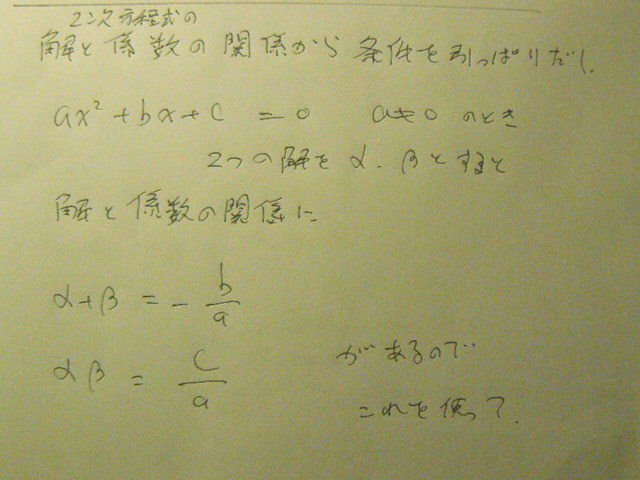 2次方程式の
解と係数の関係から 条件を引っぱりだし
ax²+bx+c = 0 a≠0 のとき
2つの解を α、βとすると
解と係数の関係に
α+β = - b/a
αβ = c/a があるので
これを使って、